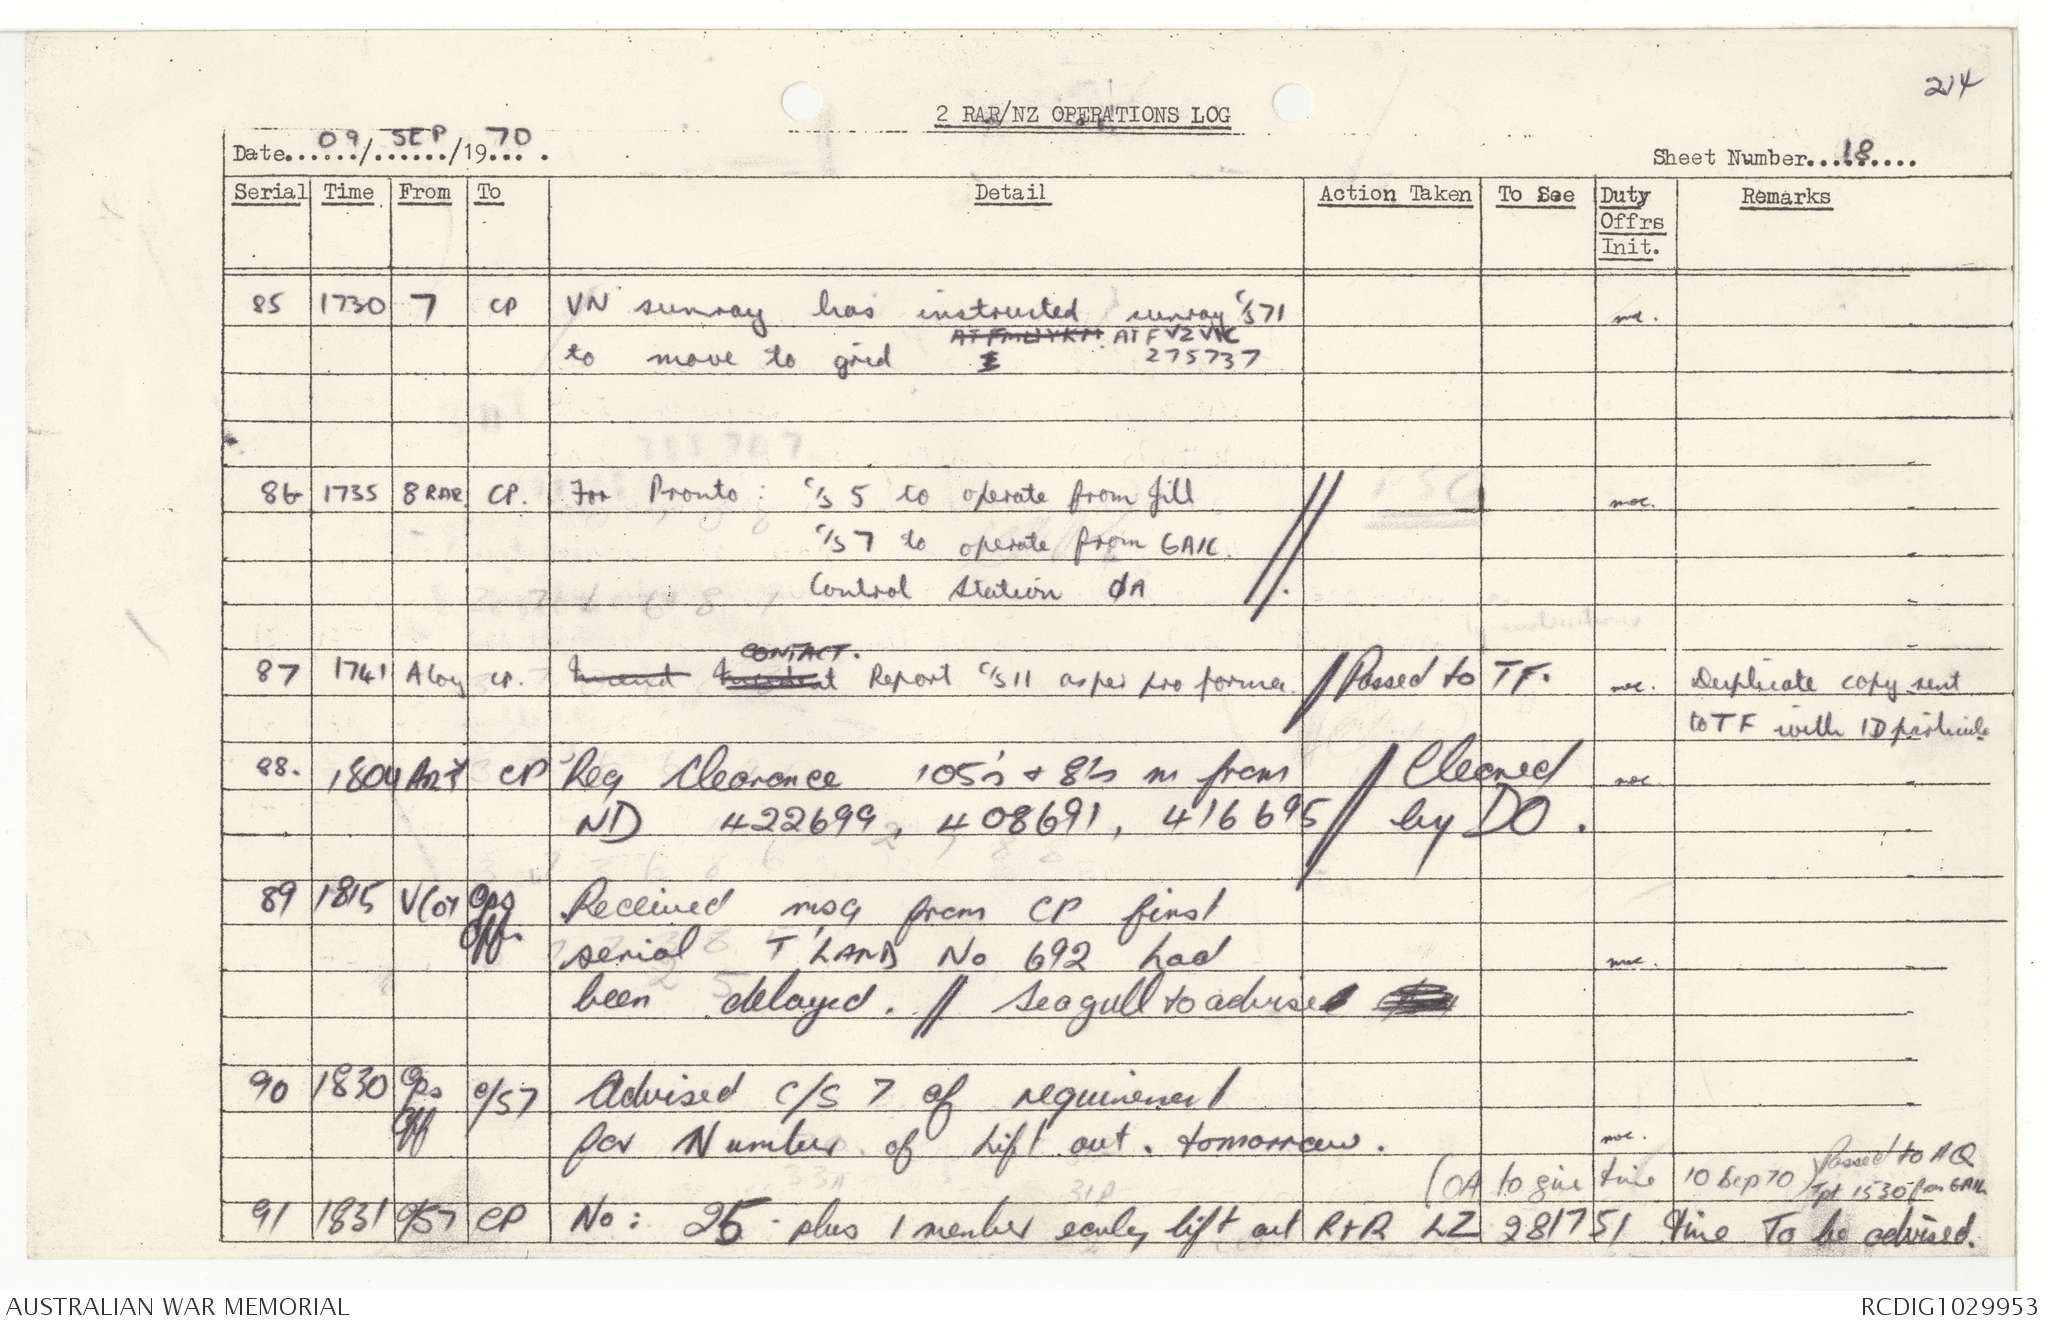 214
2 RAR/NZ OPERATIONS LOG
Date 09/SEP/1970
Sheet Number 18
Serial Time From To Detail Action Taken To See Duty Offrs Init. Remarks
85 1730 7 CP VN sunray has instructed sunray c/s 71
AT FVZVNC
to move to grid 275737
86 1735 8 RAR CP. For Pronto: c/s 5 to operate from Jill
c/s 7 to operate from GAIL
Control Station 0A
CONTACT.
87 1741 A Coy CP. Report c/s 11 as per pro forma // Passed to TF. Duplicate copy sent
to TF with ID
88. 1804 Arty CP Req Clearance 105's + 81's m from // Cleared
ND 422699, 408691, 416695 by DO.
89 1815 V Coy Ops Received msg from CP first
Offr serial T'LAND No 692 had
been delayed. // Seagull to advise
90 1830 Ops c/s 7 Advised c/s 7 of requirement
Off for Number of lift out. tomorrow.
(OA to give time 10 Sep 70) Passed to AQ
Tpt 1530 from GAIL
91 1831 c/s 7 CP No: 25 plus 1 member early lift out R+R LZ 281751 time To be advised.
AUSTRALIAN WAR MEMORIAL
RCDIG1029953